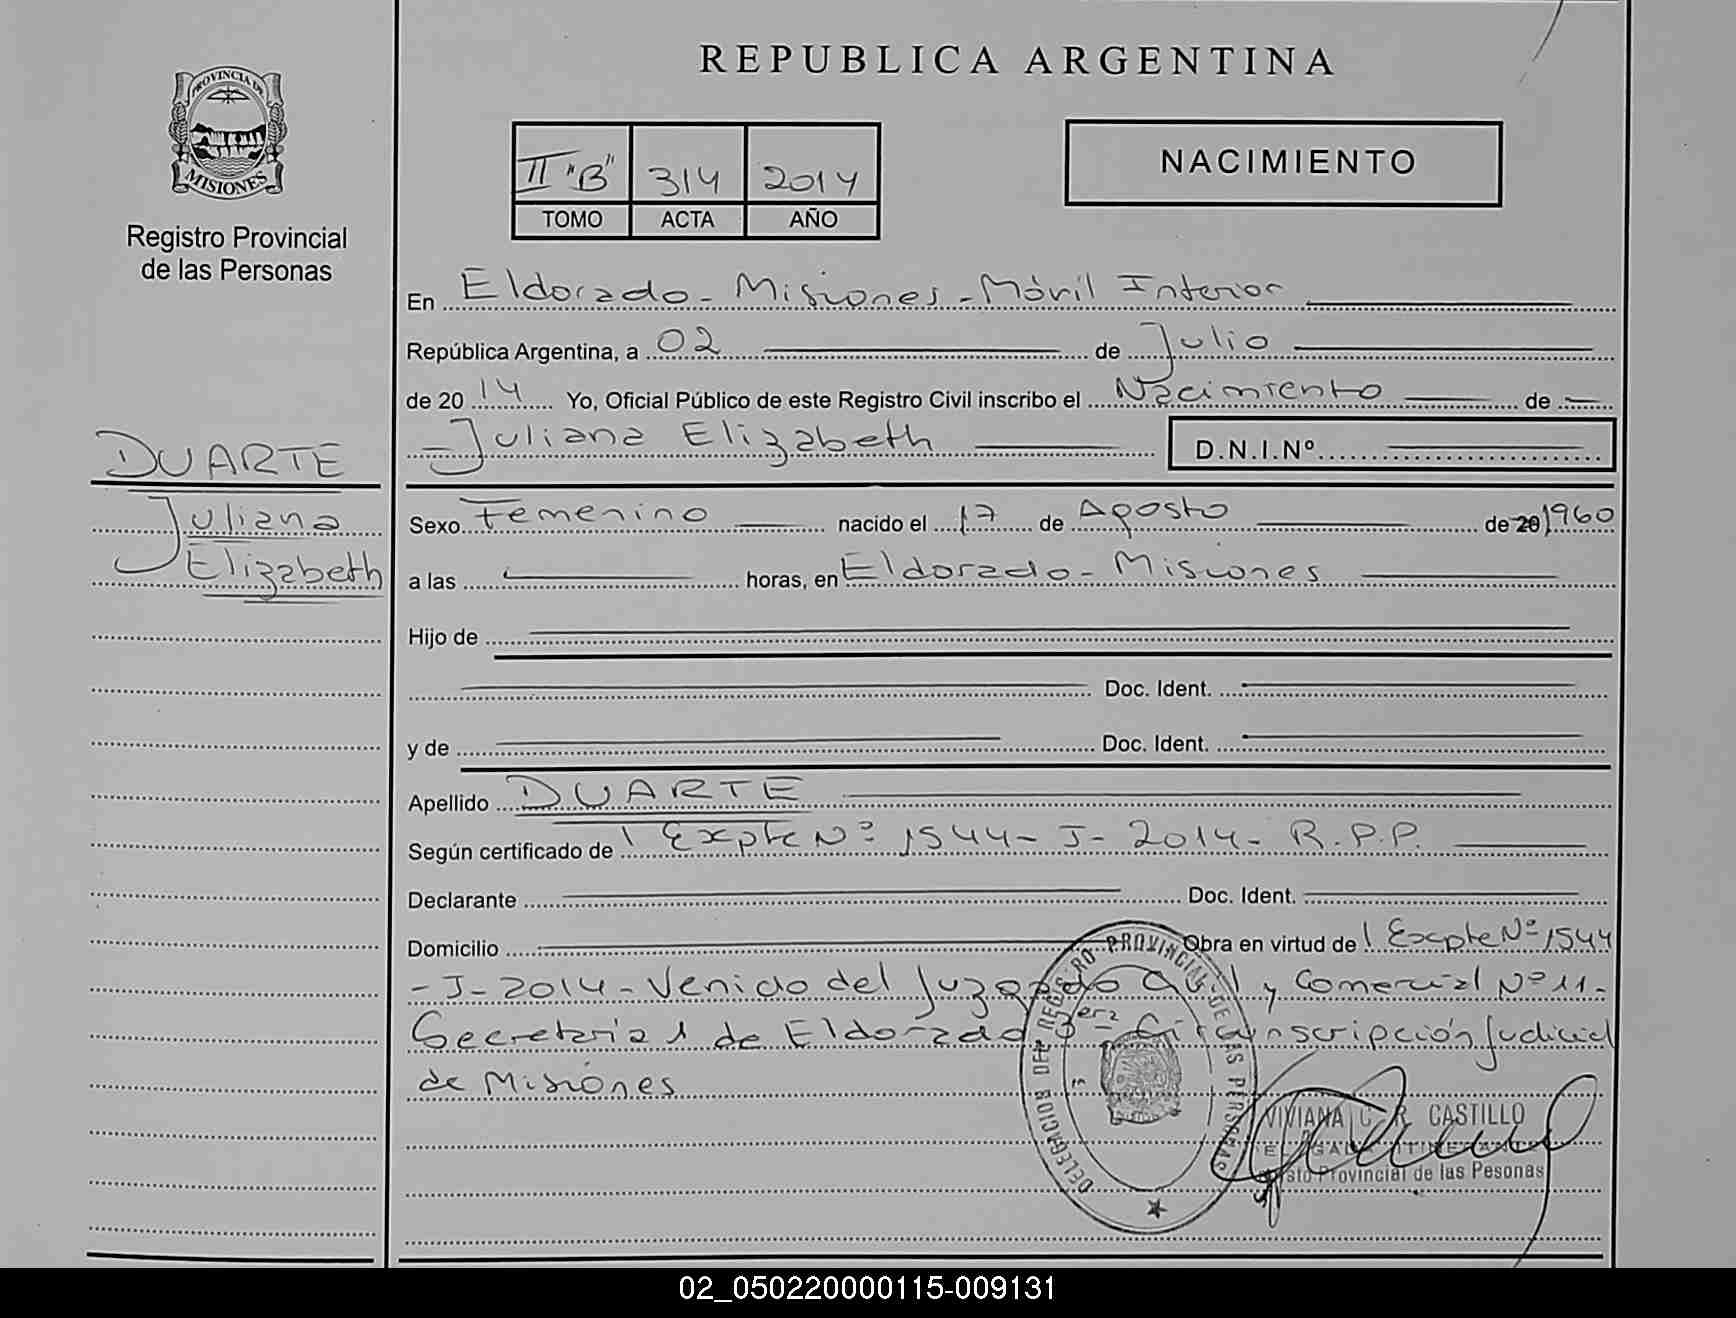 REPUBLICA ARGENTINA
PROVINCIA DE
MISIONES
Registro Provincial
de las Personas
II "B" 314 2014
TOMO ACTA AÑO
NACIMIENTO
En Eldorado - Misiones - Móvil Interior
República Argentina, a 02 de Julio
de 20 14 Yo, Oficial Público de este Registro Civil inscribo el Nacimiento de
Juliana Elizabeth D.N.I.Nº
DUARTE
Juliana
Elizabeth
Sexo Femenino nacido el 17 de Agosto de 20 1960
a las horas, en Eldorado - Misiones
Hijo de
Doc. Ident.
y de Doc. Ident.
Apellido DUARTE
Según certificado de Expte Nº 1544 - J - 2014 - R.P.P.
Declarante Doc. Ident.
Domicilio Obra en virtud de Expte Nº 1544
- J - 2014 - Venido del Juzgado Civil y Comercial Nº 11 -
Secretaría 1 de Eldorado 3era Circunscripción Judicial
de Misiones
DELEGACION DEL REGISTRO PROVINCIAL DE LAS PERSONAS
VIVIANA C. R. CASTILLO
Provincial de las Pesonas
02_050220000115-009131